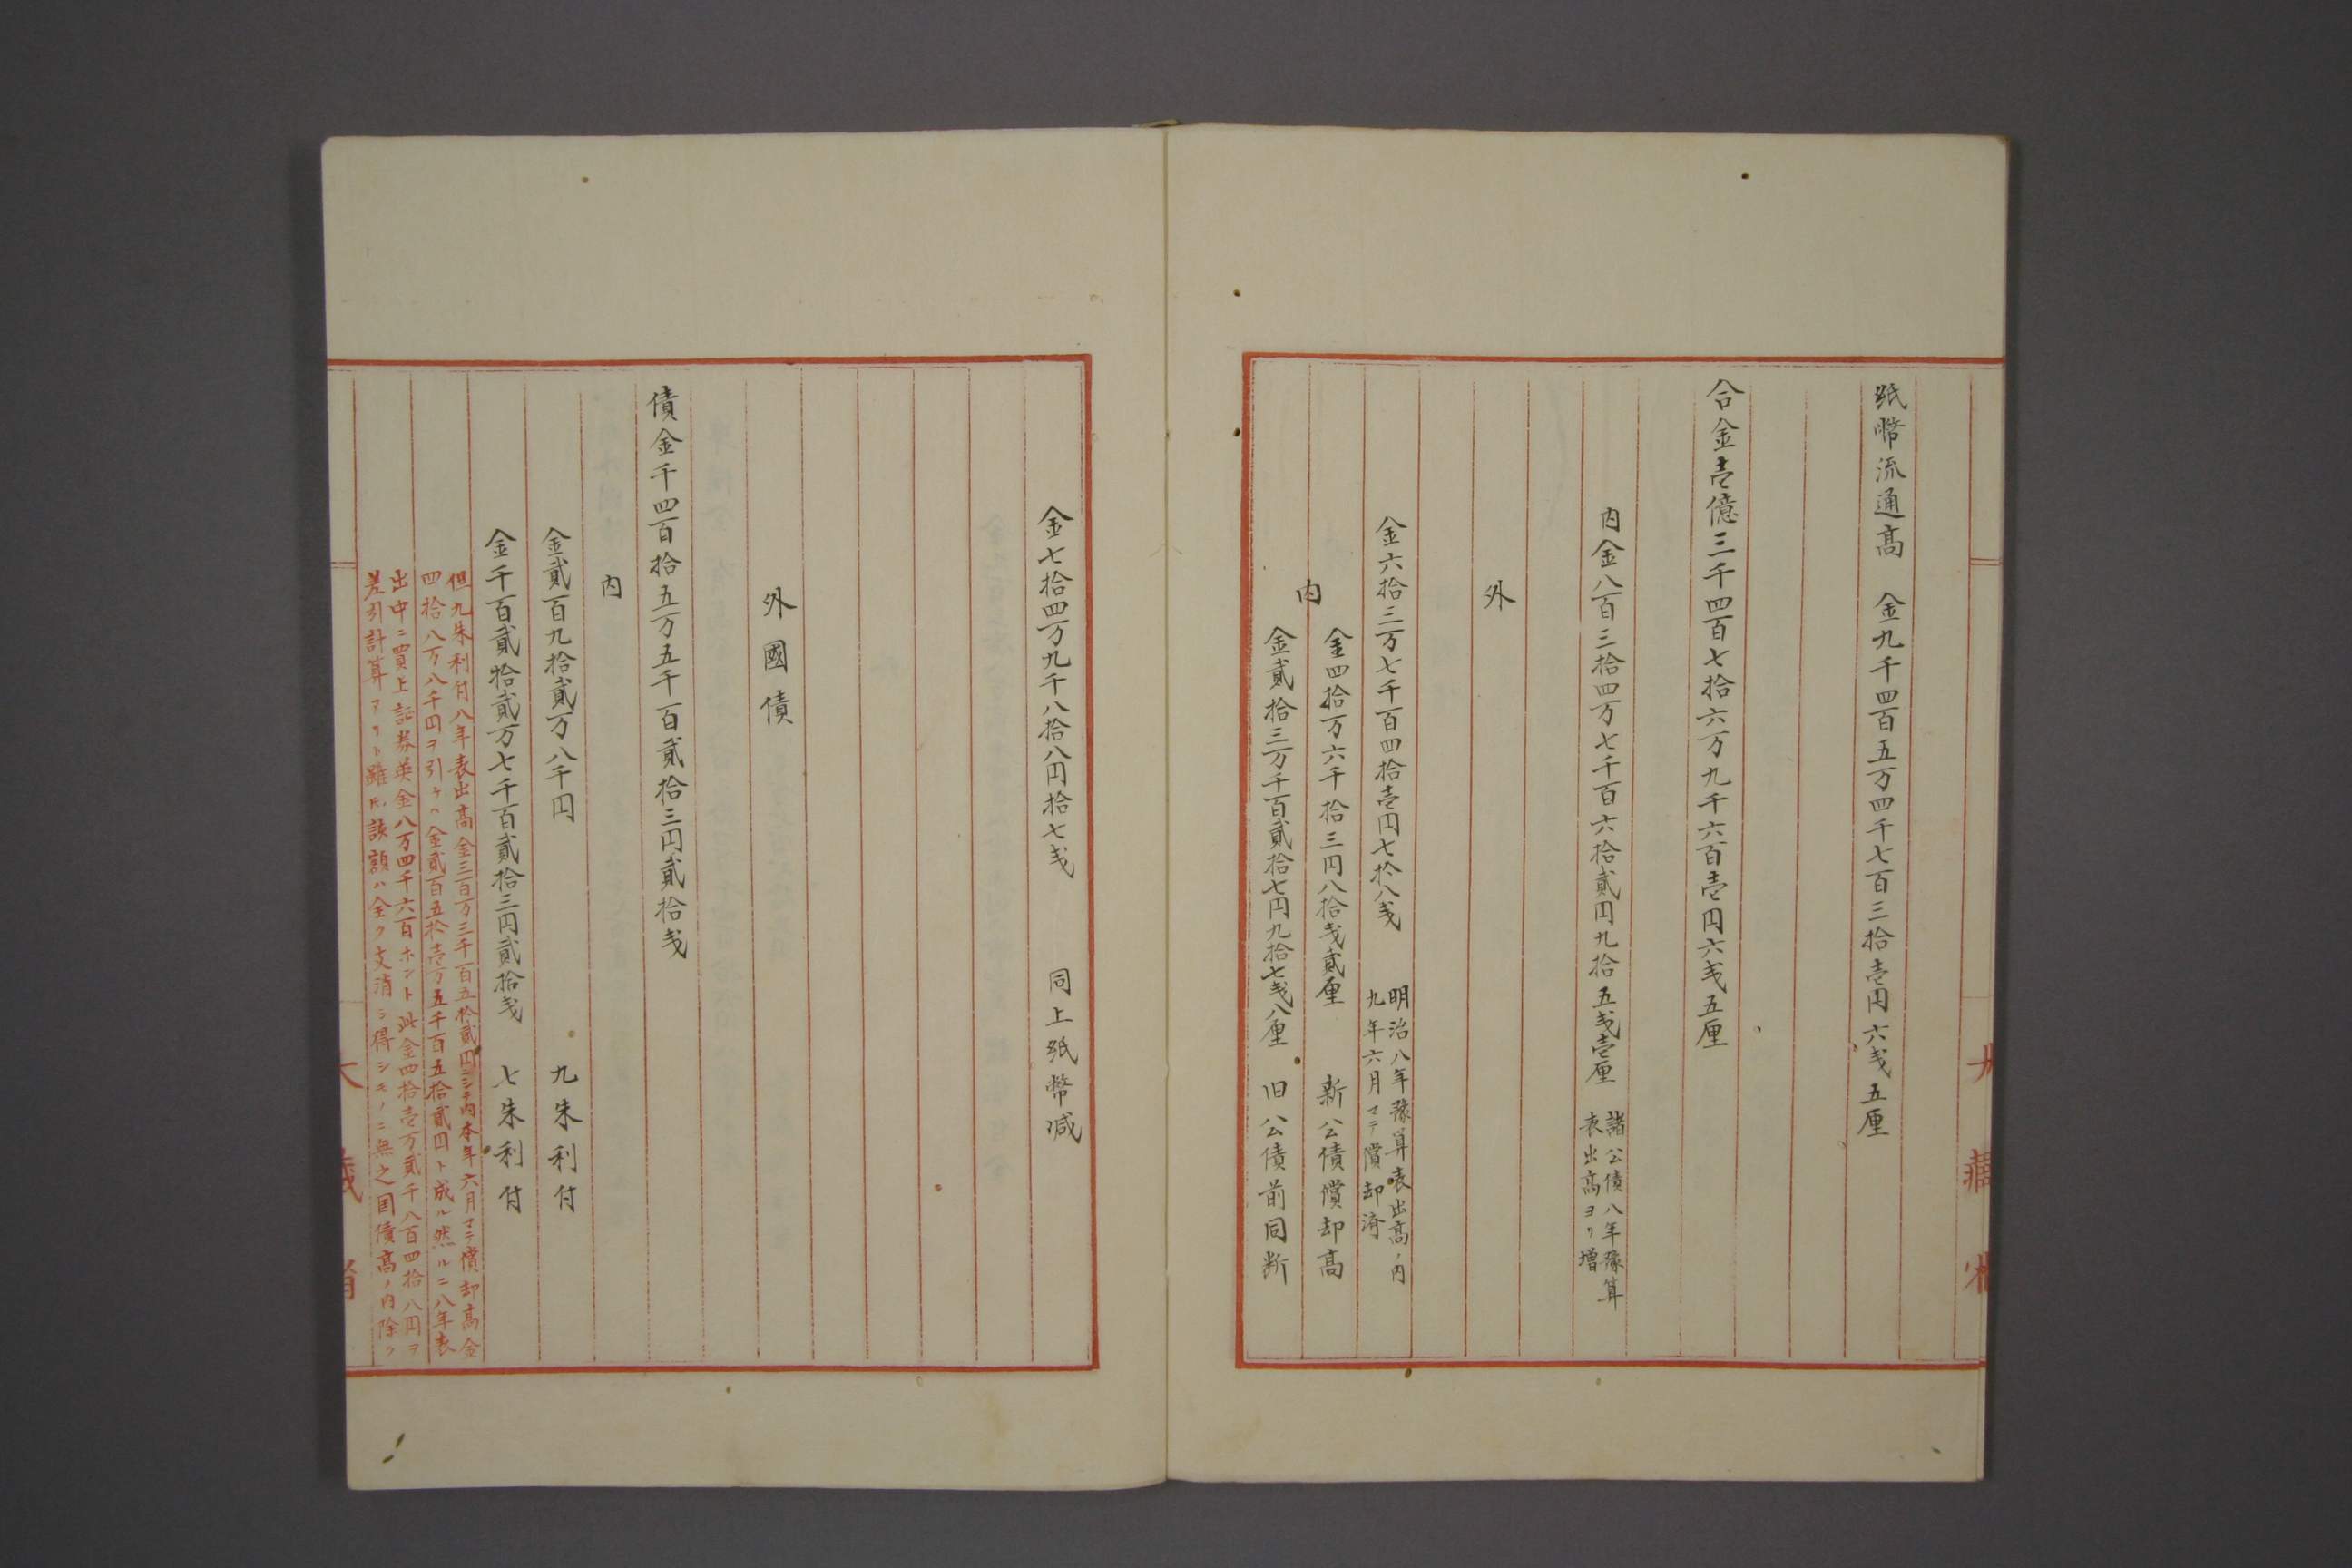 紙幣流通高　金九千四百五万四千七百三拾壱円六戔五厘
合金壱億三千四百七拾六万九千六百壱円六戔五厘
内金八百三拾四万七千百六拾貳円九拾五戔壱厘
諸公債八年豫算
表出高ヨリ増
外
金六拾三万七千百四拾壱円七拾八戔
明治八年豫算表出高ノ内
九年六月マテ償却済
内
金四拾万六千拾三円八拾戔貳厘　新公債償却高
金貳拾三万千百貳拾七円九拾七戔八厘　旧公債前同断
金七拾四万九千八拾八円拾七戔　同上紙幣减
外國債
債金千四百拾五万五千百貳拾三円貳拾戔
内
金貳百九拾貳万八千円　九朱利付
金千百貳拾貳万七千百貳拾三円貳拾戔　七朱利付
但九朱利付八年表出高金三百万三千百五拾貳円ニシテ内本年六月マテ償却高金
四拾八万八千円ヲ引ケハ金貳百五拾壱万五千百五拾貳円ト成ル然ルニ八年表
出中ニ買上証券英金八万四千六百ホント此金四拾壱万貳千八百四拾八円ヲ
差引計算アリト雖𪜈該額ハ全ク支消シ得シモノニ無之国債高ノ内除ク
大藏省